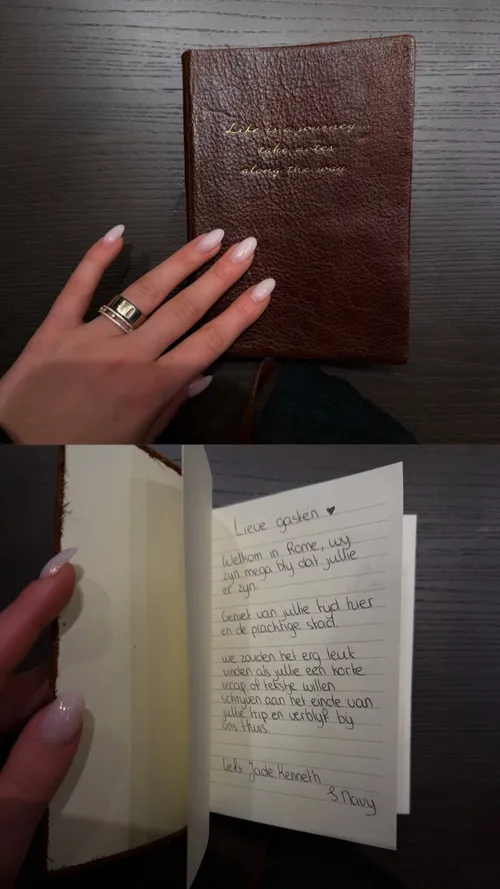 Life is a journey
take notes
along the way
Lieve gasten ♥
Welkom in Rome, wy
zyn mega bly dat jullie
er zyn.
Geniet van jullie tyd hier
en de prachtige stad.
we zouden het erg leuk
vinden als jullie een korte
recap of tekstje willen
schrijven aan het einde van
jullie trip en verblyf by
ons thuis.
Liefs Jade, Kenneth
& Navy